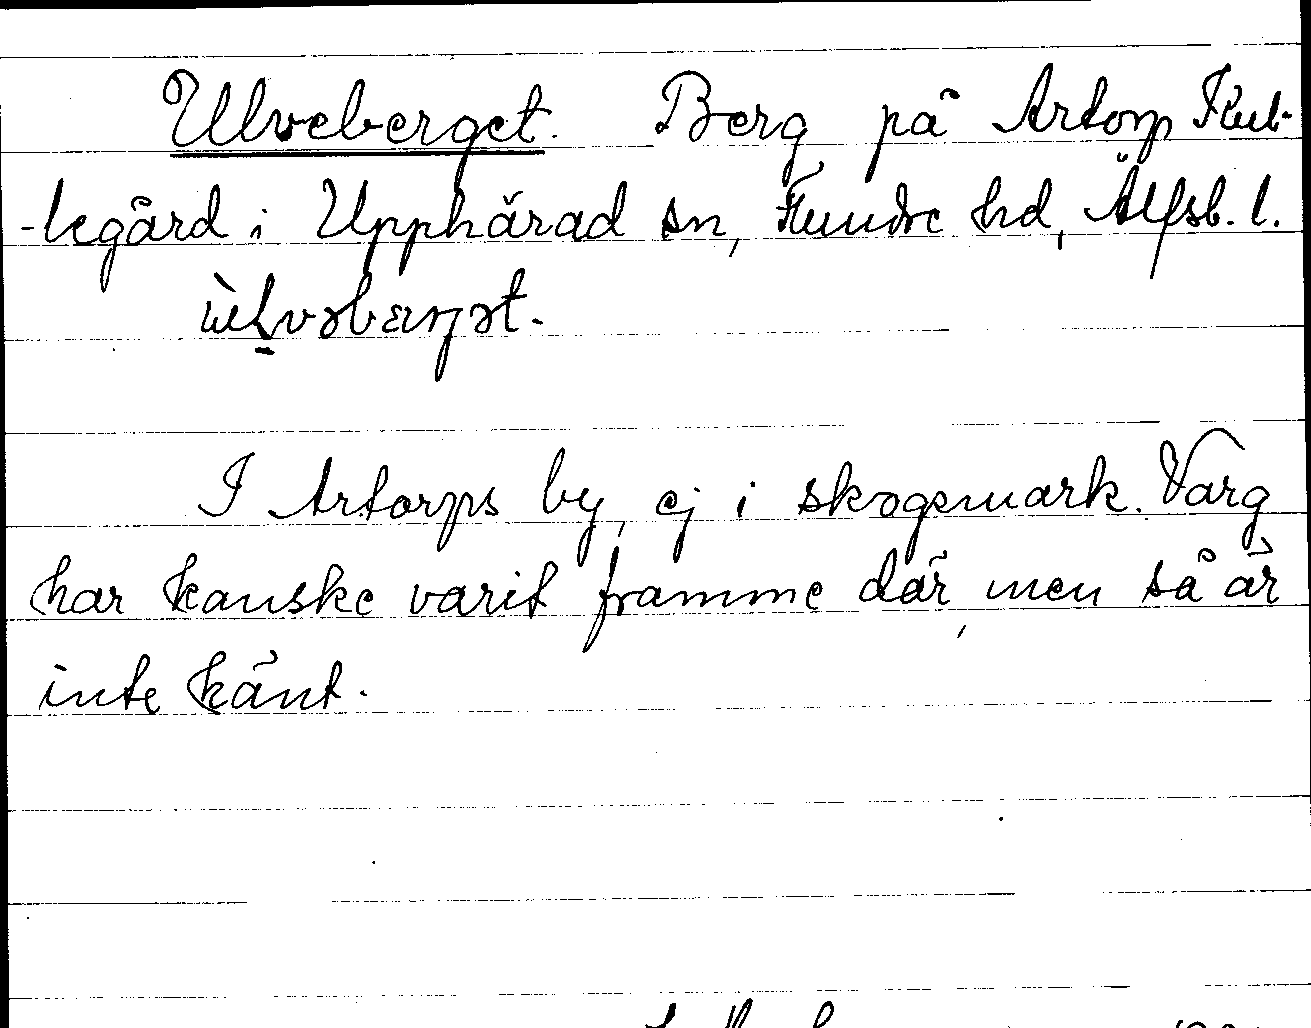 Ulveberget. Berg på Artorp Kul-
-legård i Upphärad sn, Flundre hd, Älfsb. l.
ùlvəbærjət.
I Artorps by, ej i skogsmark. Varg
har kanske varit framme där, men så är
inte känt.